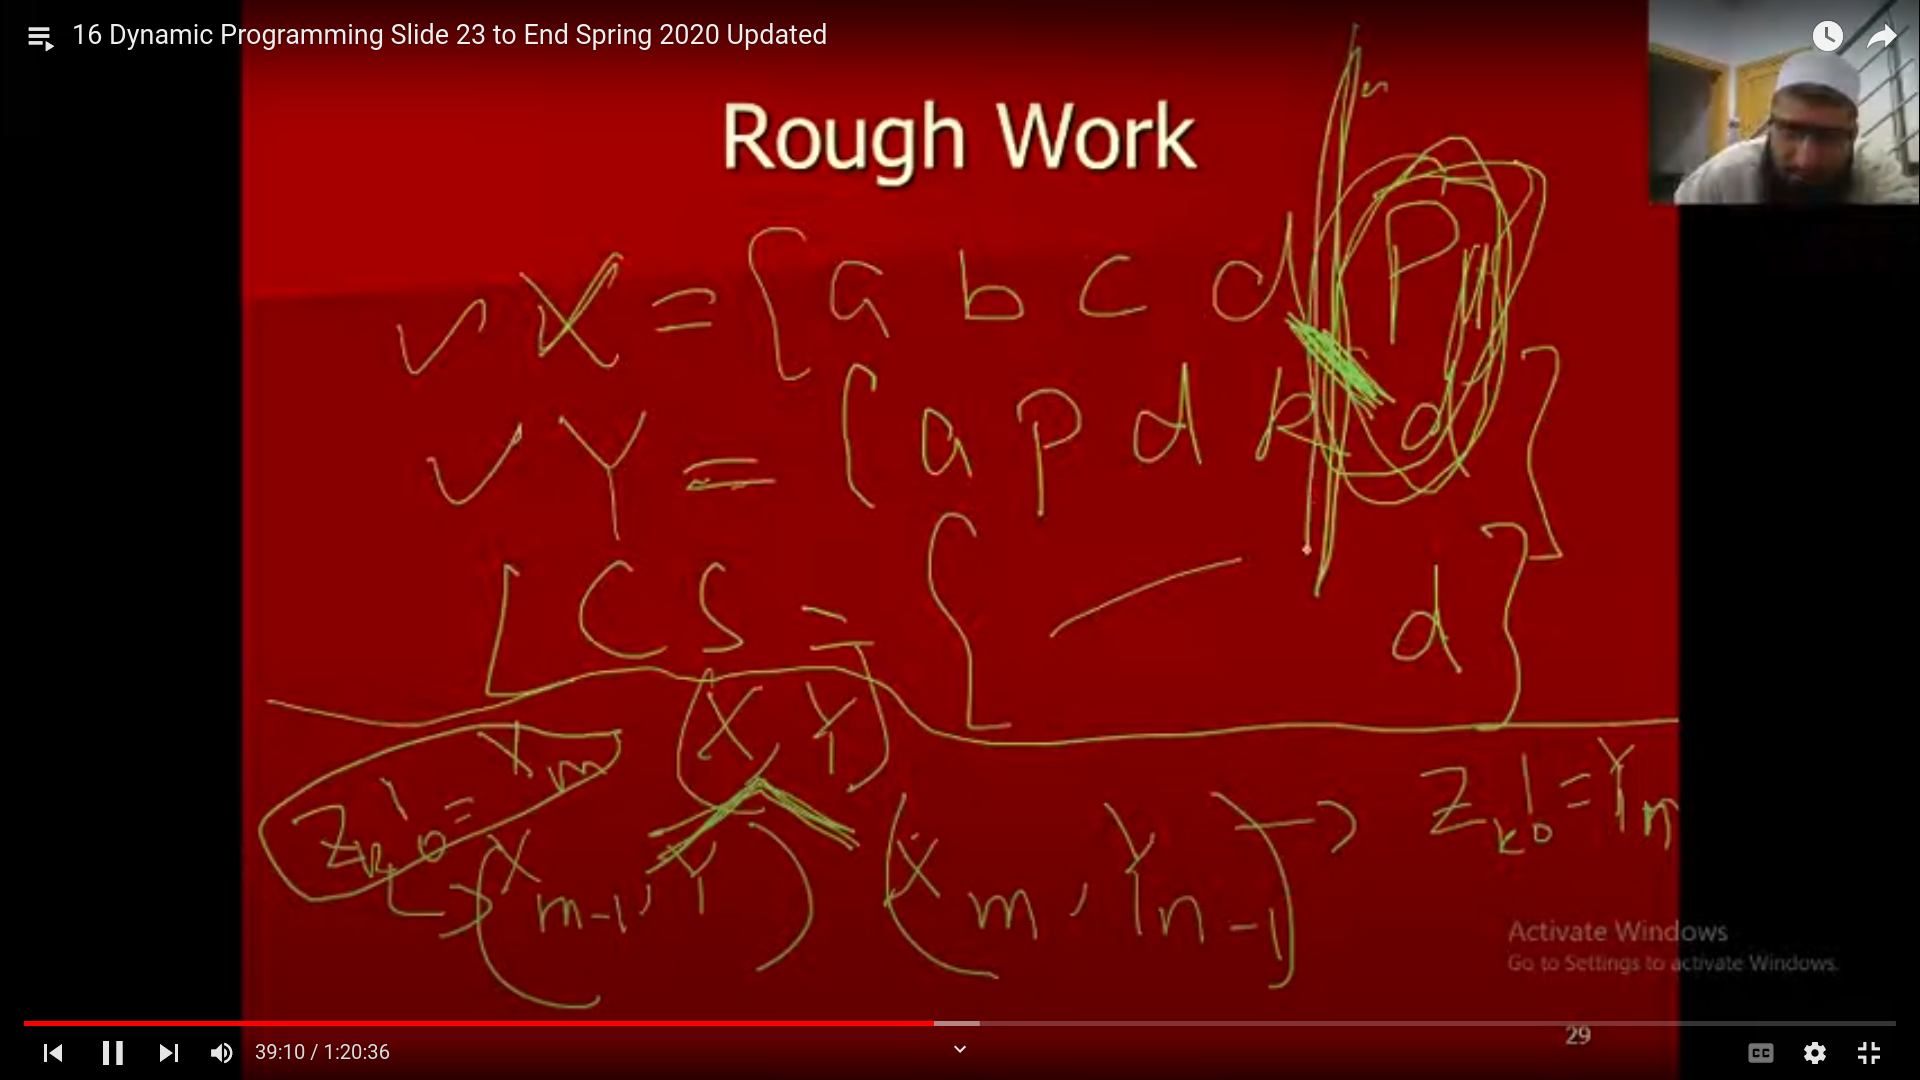 16 Dynamic Programming Slide 23 to End Spring 2020 Updated
Rough Work
X = { a b c d P
Y = { a p d k d }
LCS = { d }
(X Y)
Z_k != X_m
Z_k != Y_n
(X_m-1, Y) (X_m, Y_n-1)
Activate Windows
Go to Settings to activate Windows.
29
39:10 / 1:20:36
CC